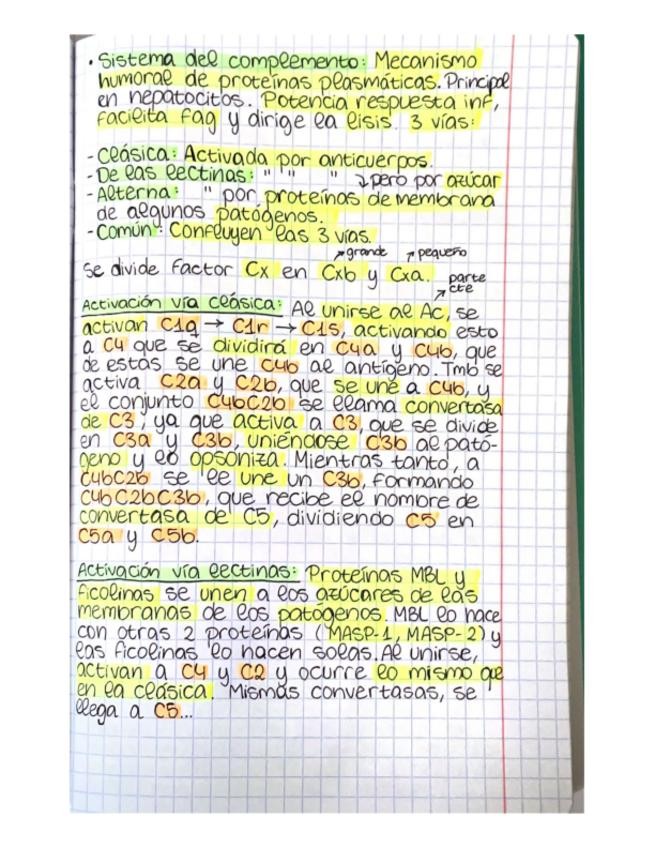 · Sistema del complemento: Mecanismo
humoral de proteínas plasmáticas. Principal
en hepatocitos. Potencia respuesta inf,
facilita fag y dirige la lisis. 3 vías:
- Clásica: Activada por anticuerpos.
- De las lectinas: " " " ↳ pero por azúcar
- Alterna: " por proteínas de membrana
de algunos patógenos.
- Común: Confluyen las 3 vías.
↗ grande ↗ pequeño
Se divide factor Cx en Cxb y Cxa.
parte
↗ cte
Activación vía clásica: Al unirse al Ac, se
activan C1q → C1r → C1s, activando esto
a C4 que se dividirá en C4a y C4b, que
de estas se une C4b al antígeno. Tmb se
activa C2a y C2b, que se une a C4b, y
el conjunto C4bC2b se llama convertasa
de C3, ya que activa a C3, que se divide
en C3a y C3b, uniéndose C3b al pató-
geno y lo opsoniza. Mientras tanto, a
C4bC2b se le une un C3b, formando
C4bC2bC3b, que recibe el nombre de
convertasa de C5, dividiendo C5 en
C5a y C5b.
Activación vía lectinas: Proteínas MBL y
ficolinas se unen a los azúcares de las
membranas de los patógenos. MBL lo hace
con otras 2 proteínas (MASP-1, MASP-2) y
las ficolinas lo hacen solas. Al unirse,
activan a C4 y C2 y ocurre lo mismo que
en la clásica. Mismas convertasas, se
llega a C5...